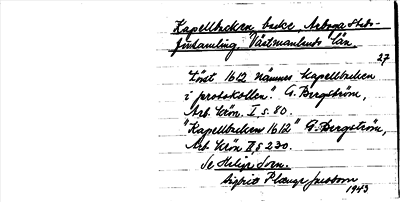 Kapellbacken backe, Arboga stads-
församling, Västmanlands län.
27
"Året 1612 nämnes Kapellbacken
i protokollen". G. Bergström,
Arb. krön. I s. 80.
"Kapellbacken 1612" G. Bergström,
Arb. krön II s 230.
Se Helge
Sigrid Plange Jacobson
1943